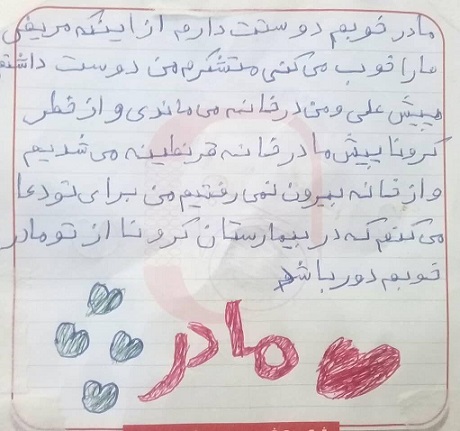 مادر خوبم دوستت دارم از اینکه مریضی
مارا خوب می کنی متشکرم من دوست داشتم
پیش علی و من در خانه می ماندی و از خطر
کرونا پیش مادر خانه قرنطینه می شدیم
و از خانه بیرون نمی رفتیم من برای تو دعا
می کنم که در بیمارستان کرونا از تو مادر
خوبم دور باشد
مادر